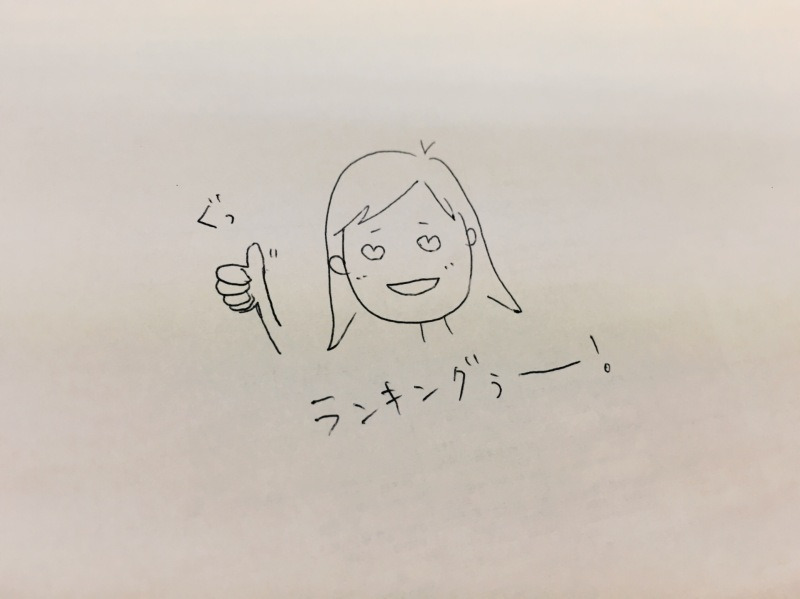 ぐっ
ランキングぅー!